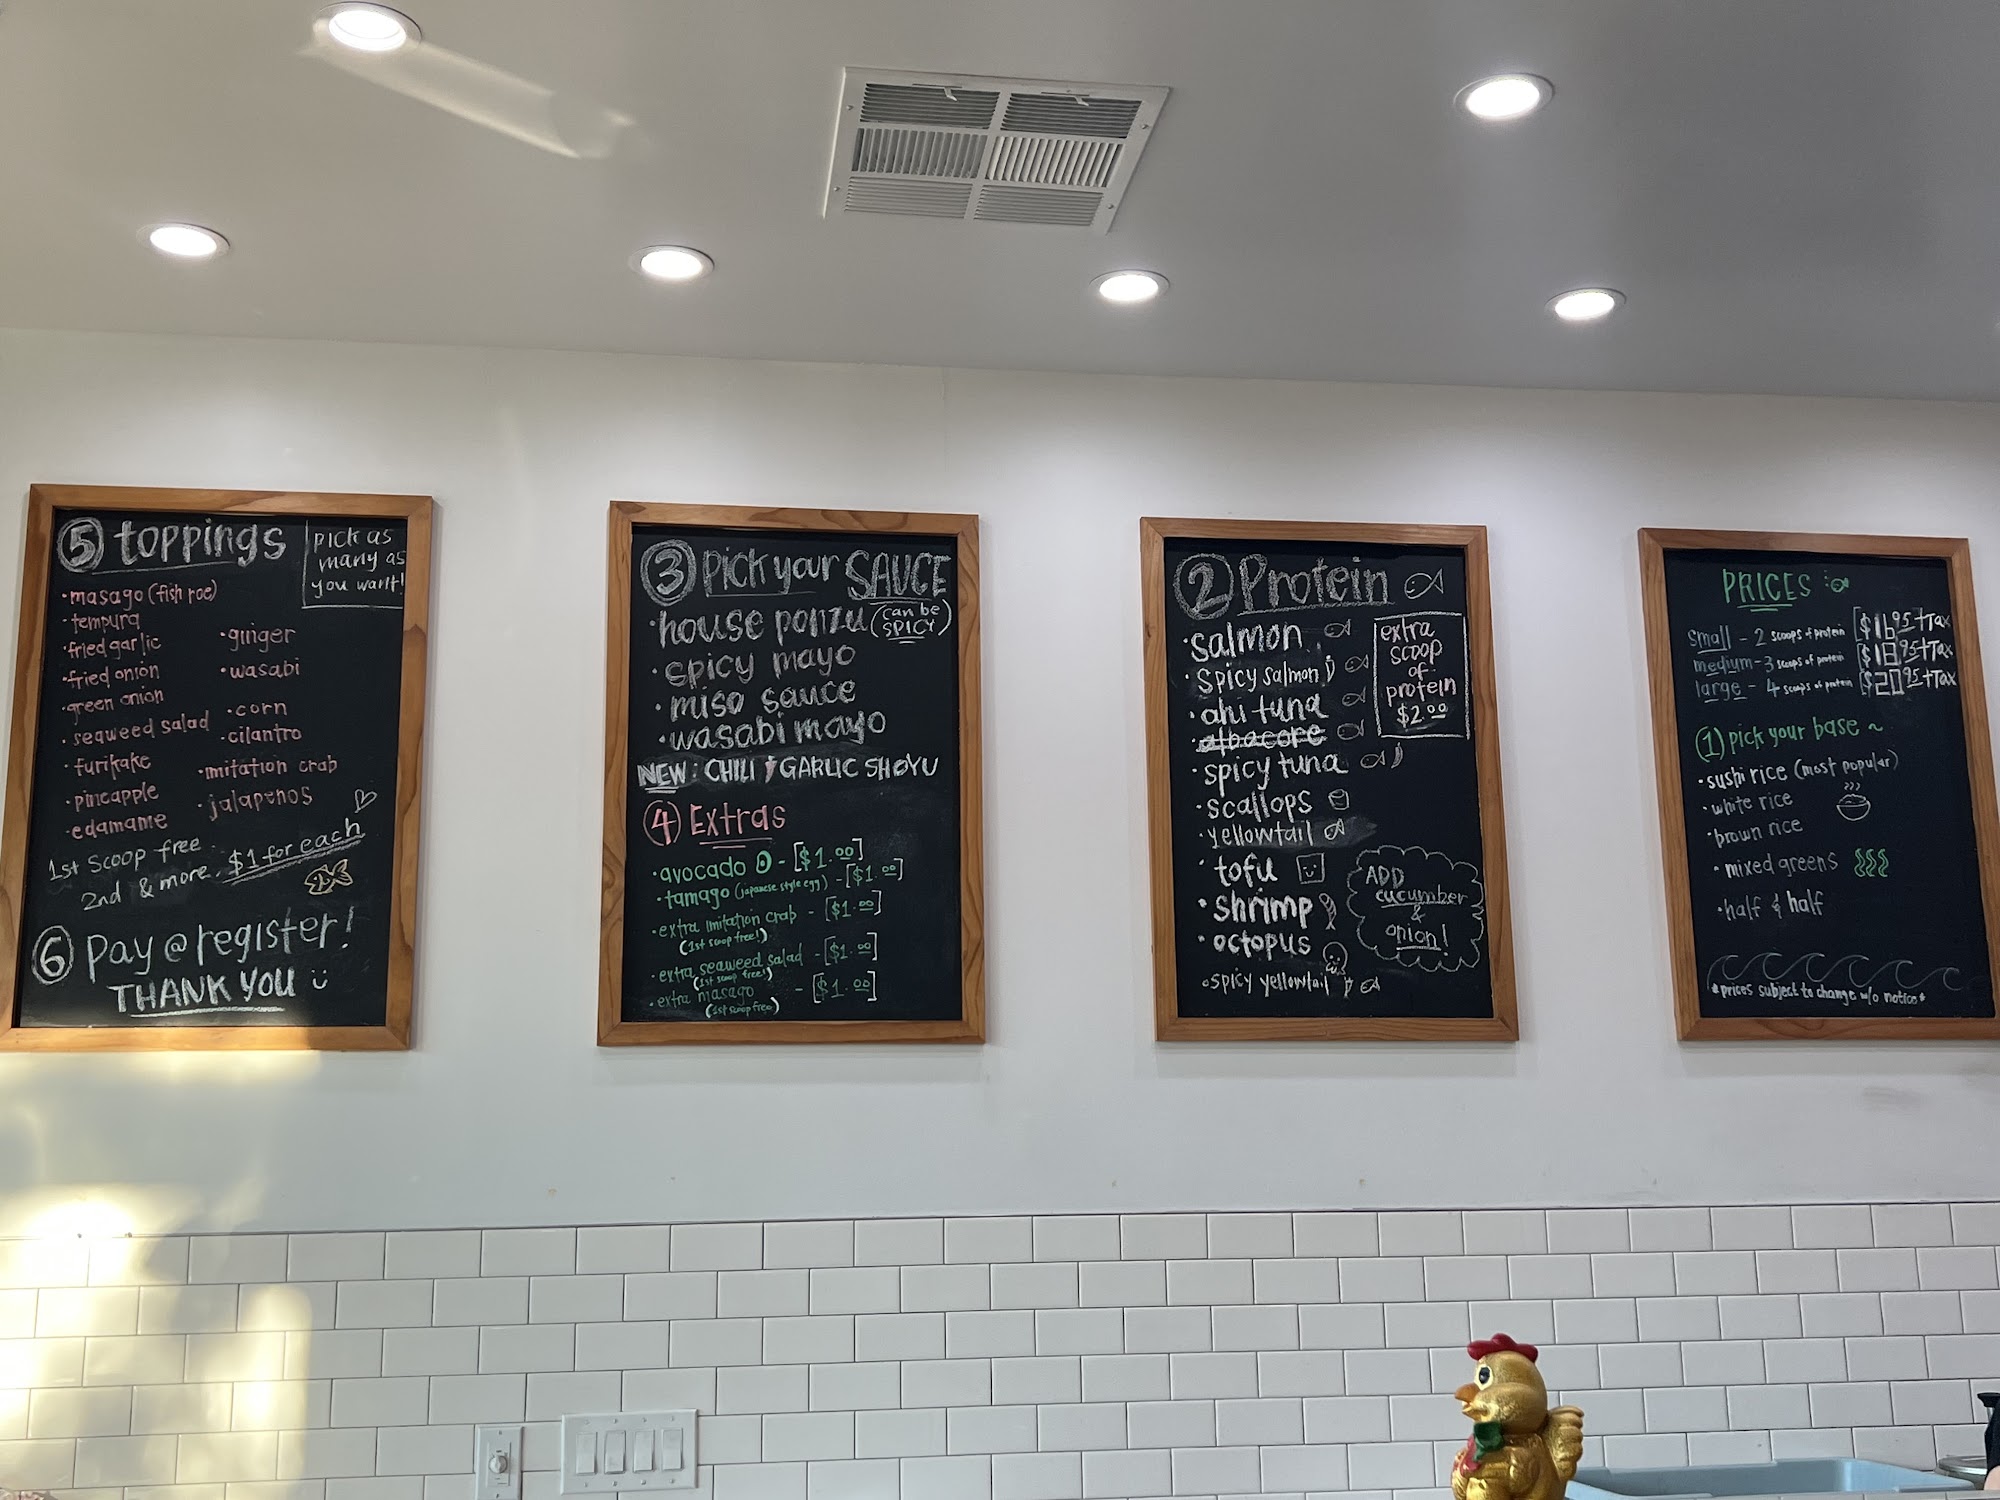 5 toppings
pick as
many as
you want!
• masago (fish roe)
• tempura
• fried garlic
• fried onion
• green onion
• seaweed salad
• furikake
• pineapple
• edamame
• ginger
• wasabi
• corn
• cilantro
• imitation crab
• jalapenos
1st scoop free
2nd & more. $1 for each
6 pay @ register!
THANK YOU
3 pick your SAUCE
• house ponzu (can be SPICY)
• spicy mayo
• miso sauce
• wasabi mayo
NEW: CHILI GARLIC SHOYU
4 Extras
• avocado - [$1.00]
• tamago (japanese style egg) - [$1.00]
• extra imitation crab - [$1.00]
(1st scoop free!)
• extra seaweed salad - [$1.00]
(1st scoop free!)
• extra masago - [$1.00]
(1st scoop free)
2 Protein
• salmon
• spicy salmon
• ahi tuna
• albacore
• spicy tuna
• scallops
• yellowtail
• tofu
• shrimp
• octopus
• spicy yellowtail
extra
scoop
of
protein
$2.00
ADD
cucumber
&
onion!
PRICES
small - 2 scoops of protein [$16.95+Tax
medium - 3 scoops of protein [$18.95+Tax
large - 4 scoops of protein [$20.95+Tax
(1) pick your base ~
• sushi rice (most popular)
• white rice
• brown rice
• mixed greens
• half & half
*prices subject to change w/o notice*